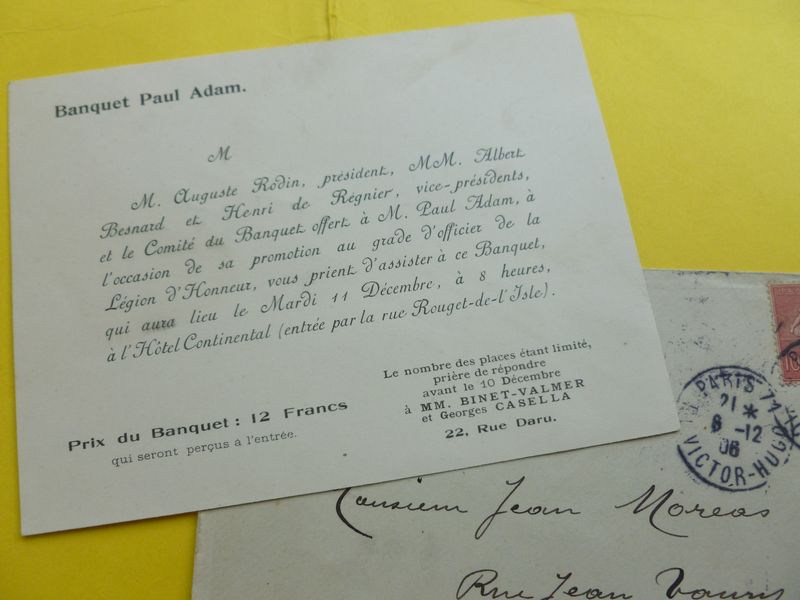 Banquet Paul Adam.
M
M. Auguste Rodin, président, MM. Albert
Besnard et Henri de Régnier, vice-présidents,
et le Comité du Banquet offert à M. Paul Adam, à
l'occasion de sa promotion au grade d'officier de la
Légion d'Honneur, vous prient d'assister à ce Banquet,
qui aura lieu le Mardi 11 Décembre, à 8 heures,
à l'Hôtel Continental (entrée par la rue Rouget-de-l'Isle).
Le nombre des places étant limité,
prière de répondre
avant le 10 Décembre
à MM. BINET-VALMER
et Georges CASELLA
22, Rue Daru.
Prix du Banquet : 12 Francs
qui seront perçus à l'entrée.
PARIS 71
21 *
6 -12
06
VICTOR-HUGO
10
Monsieur Jean Moreas
Rue Jean